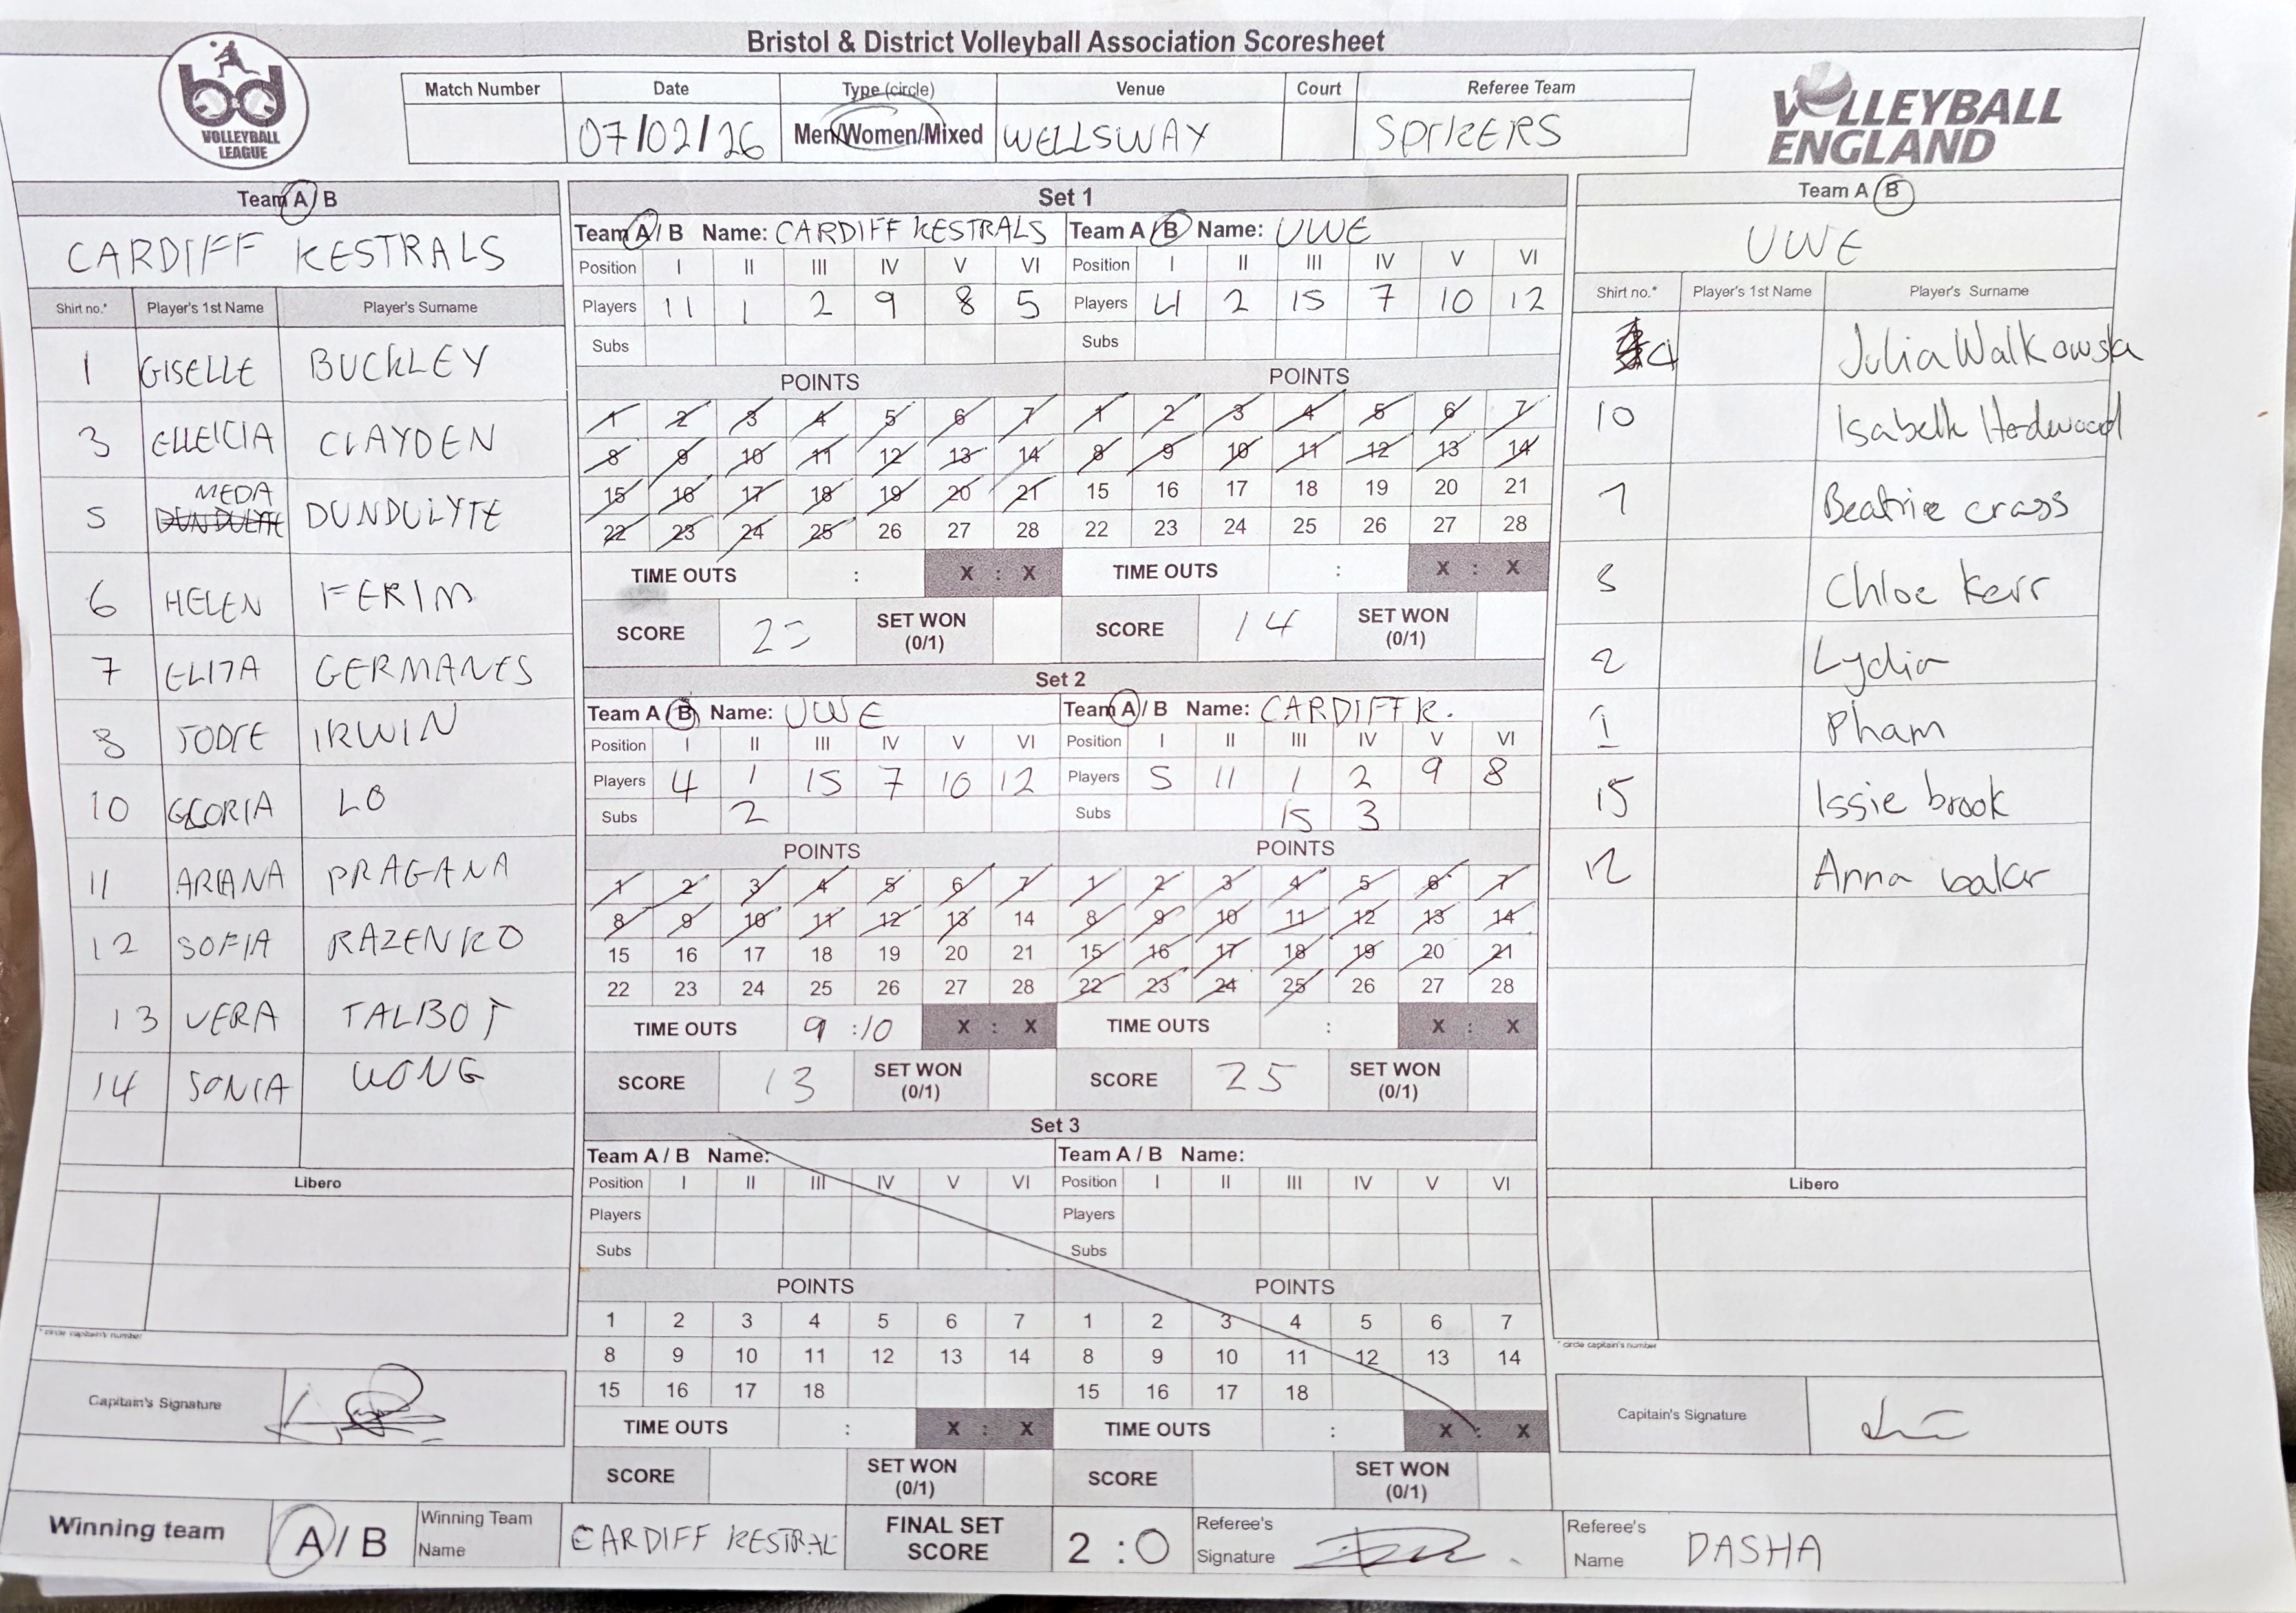 Bristol & District Volleyball Association Scoresheet
bd
VOLLEYBALL
LEAGUE
Match Number Date Type (circle) Venue Court Referee Team
07/02/26 Men/Women/Mixed WELLSWAY SPIKERS
VOLLEYBALL
ENGLAND
Team A / B
CARDIFF KESTRALS
Shirt no.* Player's 1st Name Player's Surname
1 GISELLE BUCKLEY
3 ELLEICIA CLAYDEN
5 MEDA DUNDULYTE
6 HELEN FERIM
7 ELIJA GERMANES
8 JODIE IRWIN
10 GLORIA LO
11 ARIANA PRAGANA
12 SOFIA RAZENKO
13 VERA TALBOT
14 SONIA WONG
Libero
* circle captain's number
Capitain's Signature
Set 1
Team A / B Name: CARDIFF KESTRALS Team A / B Name: UWE
Position I II III IV V VI Position I II III IV V VI
Players 11 1 2 9 8 5 Players 4 2 15 7 10 12
Subs Subs
POINTS POINTS
1 2 3 4 5 6 7 1 2 3 4 5 6 7
8 9 10 11 12 13 14 8 9 10 11 12 13 14
15 16 17 18 19 20 21 15 16 17 18 19 20 21
22 23 24 25 26 27 28 22 23 24 25 26 27 28
TIME OUTS : X : X TIME OUTS : X : X
SCORE SET WON (0/1) SCORE 14 SET WON (0/1)
Set 2
Team A / B Name: UWE Team A / B Name: CARDIFF K.
Position I II III IV V VI Position I II III IV V VI
Players 4 1 15 7 10 12 Players 5 11 1 2 9 8
Subs 2 Subs 15 3
POINTS POINTS
1 2 3 4 5 6 7 1 2 3 4 5 6 7
8 9 10 11 12 13 14 8 9 10 11 12 13 14
15 16 17 18 19 20 21 15 16 17 18 19 20 21
22 23 24 25 26 27 28 22 23 24 25 26 27 28
TIME OUTS 9 : 10 X : X TIME OUTS : X : X
SCORE 13 SET WON (0/1) SCORE 25 SET WON (0/1)
Set 3
Team A / B Name: Team A / B Name:
Position I II III IV V VI Position I II III IV V VI
Players Players
Subs Subs
POINTS POINTS
1 2 3 4 5 6 7 1 2 3 4 5 6 7
8 9 10 11 12 13 14 8 9 10 11 12 13 14
15 16 17 18 15 16 17 18
TIME OUTS : X : X TIME OUTS : X : X
SCORE SET WON (0/1) SCORE SET WON (0/1)
Team A / B
UWE
Shirt no.* Player's 1st Name Player's Surname
4 Julia Walkowska
10 Isabelle
7 Beatrie crass
Chloe Kerr
2 Lydia
1 Pham
15 Issie brook
12 Anna baker
Libero
* circle captain's number
Capitain's Signature
Winning team A / B Winning Team Name CARDIFF KESTRAL FINAL SET SCORE 2 : 0 Referee's Signature Referee's Name DASHA